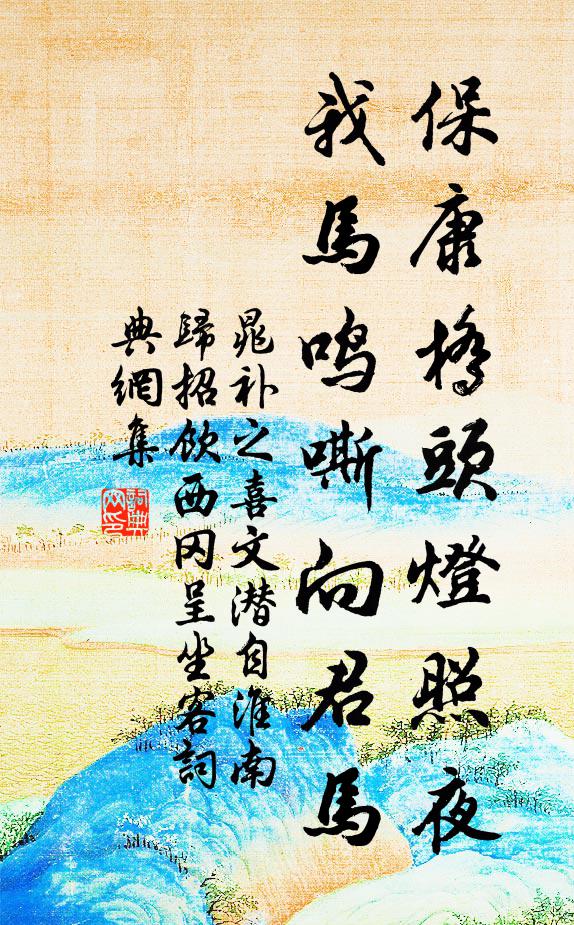 保康橋頭燈照夜
我馬鳴嘶向君馬
晁补之喜文潜自淮南
歸招飲西冈呈坐客詞
典網集
詞典